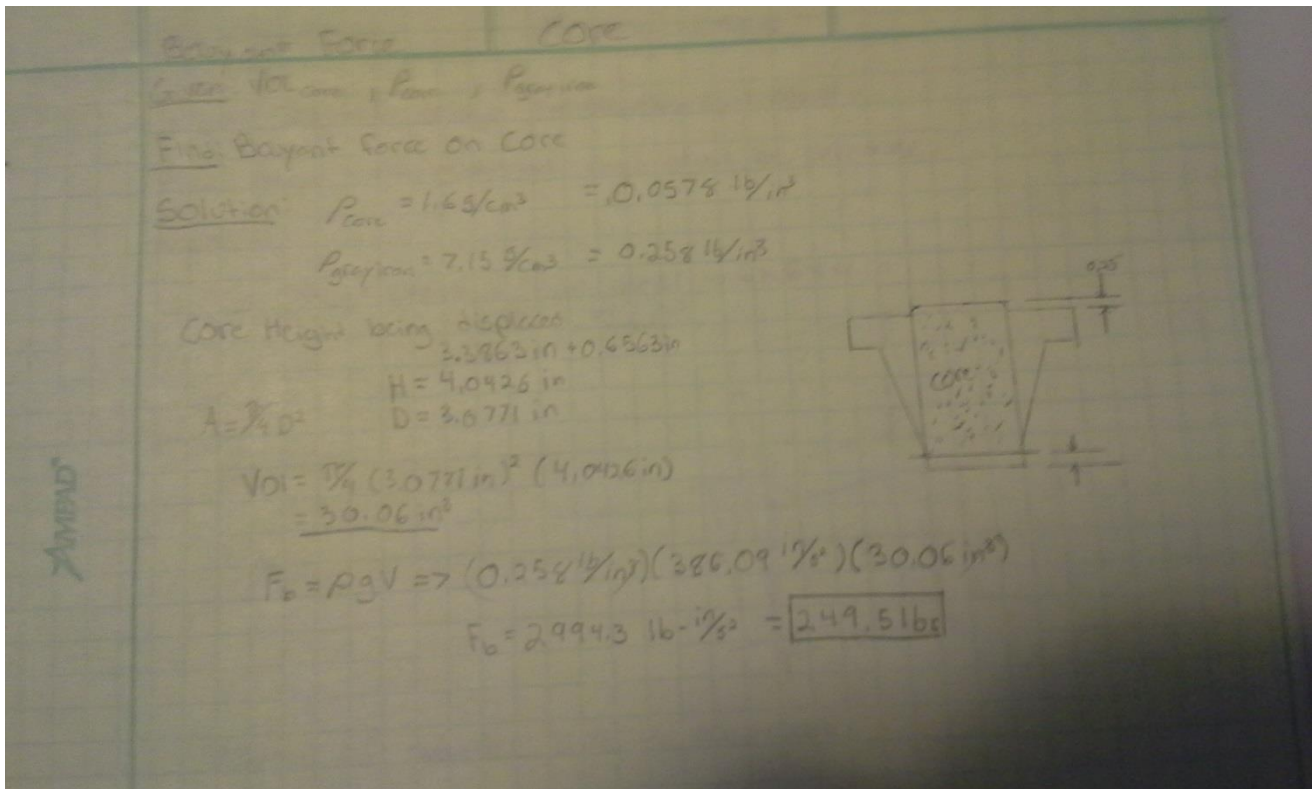 Bouyant Force Core
Given Vol core, ρcore, ρgrayiron
Find: Bouyant force on Core
Solution: ρcore = 1.6 g/cm³ = 0.0578 lb/in³
ρgrayiron = 7.15 g/cm³ = 0.258 lb/in³
0.25
Core Height being displaced
3.3863 in + 0.6563 in
H = 4.0426 in
core
A = π/4 D² D = 3.0771 in
Vol = π/4 (3.0771 in)² (4.0426 in)
= 30.06 in³
AMPAD
F_b = ρgV => (0.258 lb/in³)(386.09 in/s²)(30.06 in³)
F_b = 2994.3 lb-in/s² = 249.5 lbf